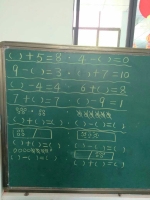 ( )+5=8 · 4-( )=0
9-( )=3 · ( )+7=10
( )-4=4 · 0+( )=8
7+( )=7 · ( )-9=1
( )+( )=( ) ( )-( )=( )
( )+( )=( ) ( )-( )=( )
( )-( )=( )
( )+( )=( )